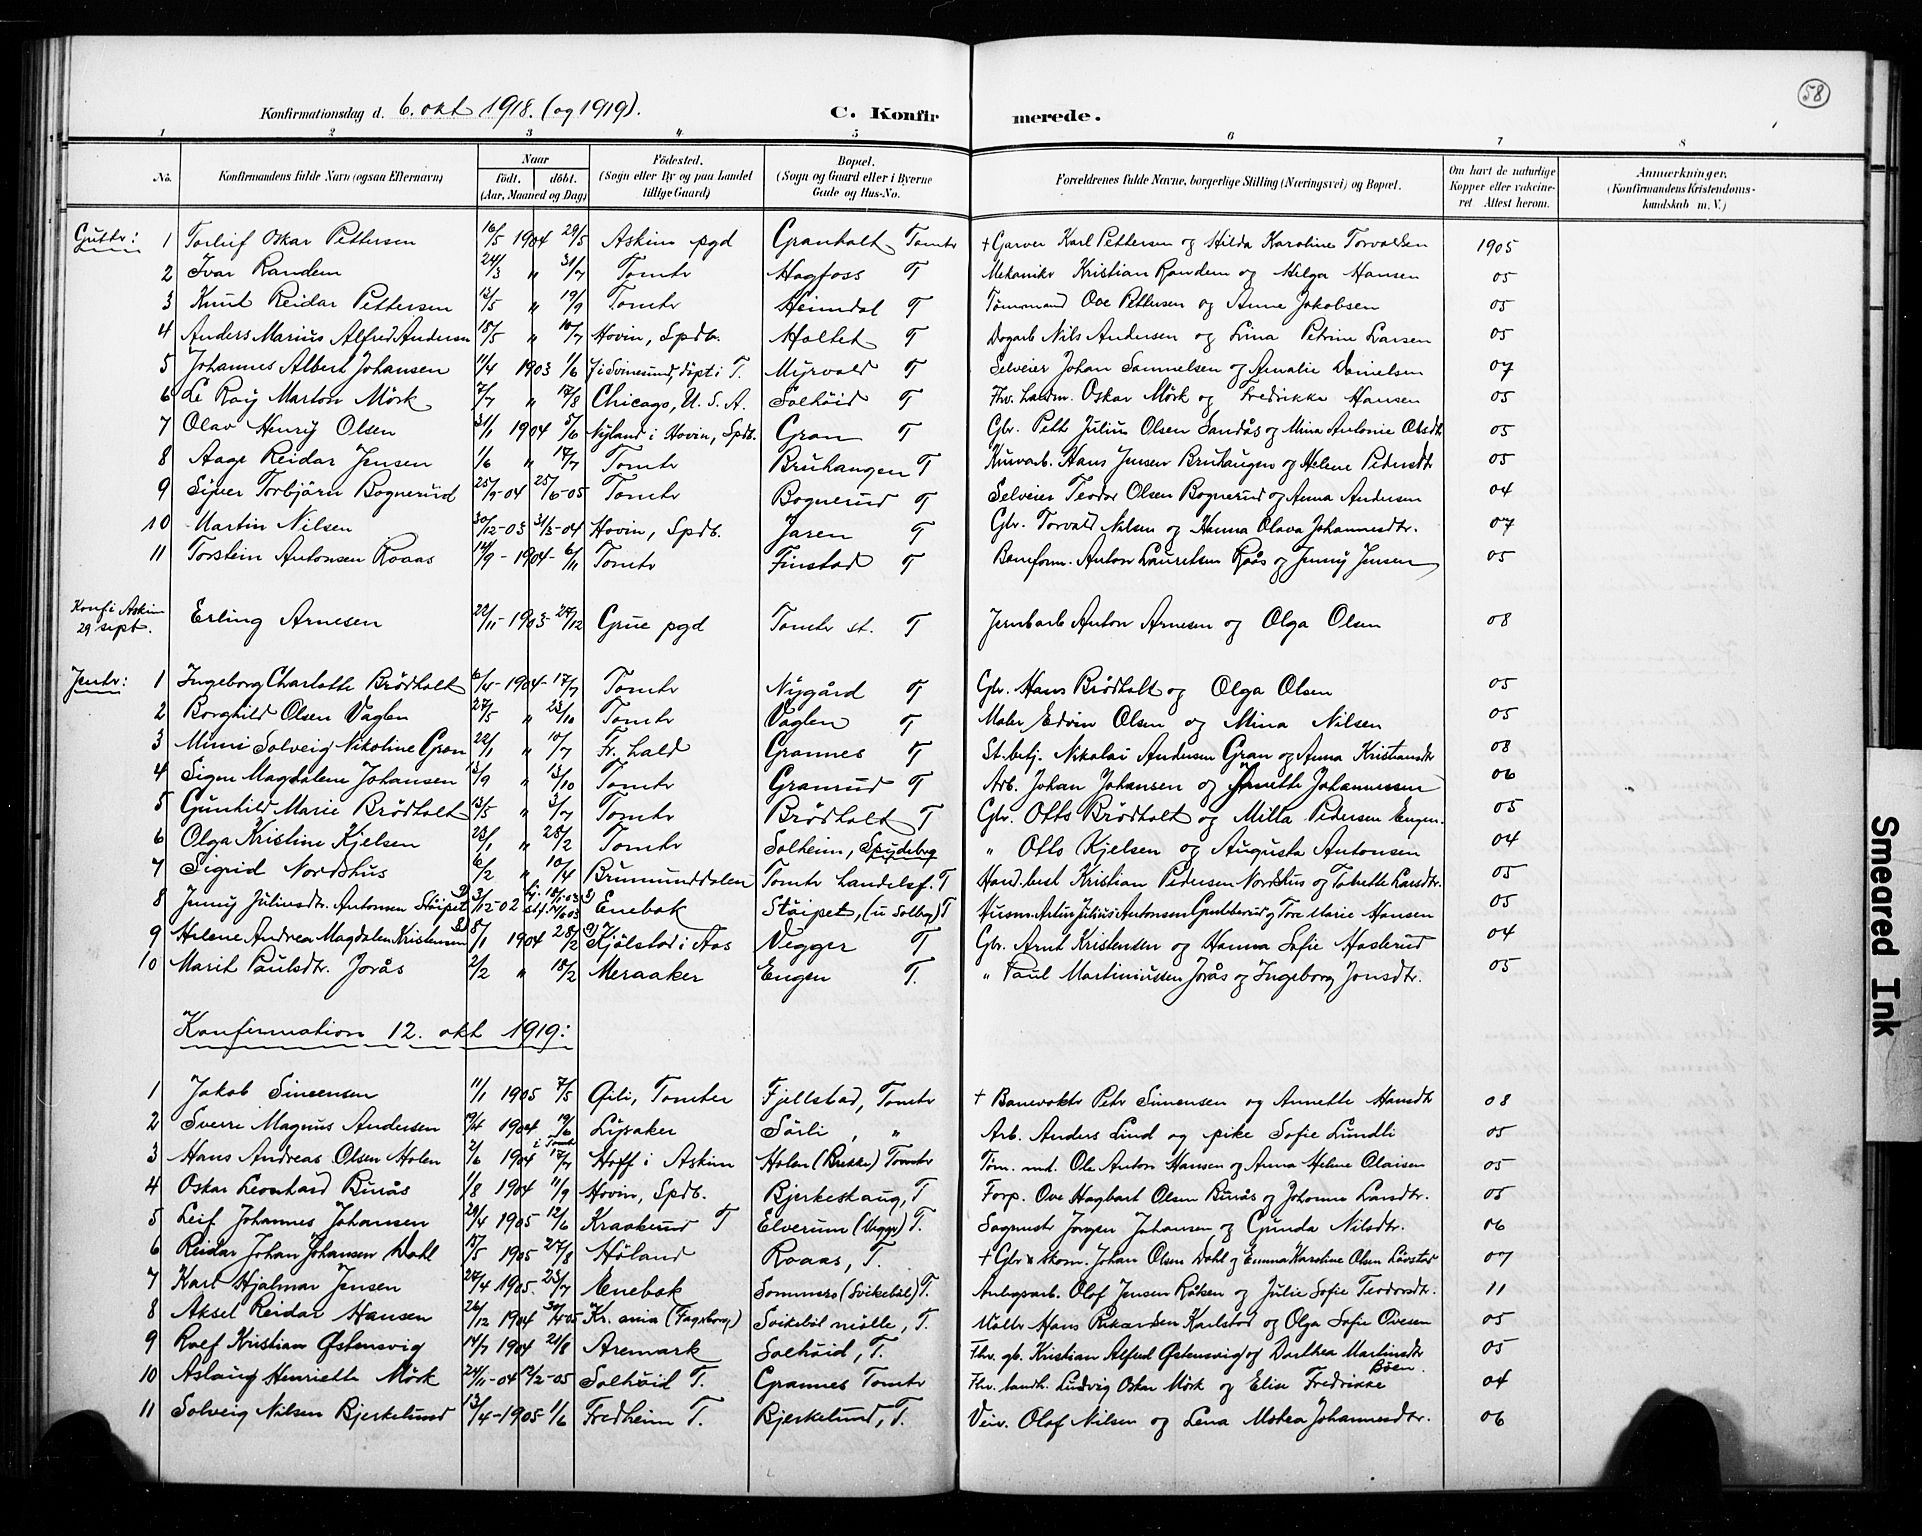 58
Konfirmationsdag d. 6. okt 1918. (og 1919). C. Konfirmerede.
1 2 3 4 5 6 7 8
No. Konfirmandens fulde Navn (ogsaa Efternavn) Naar födt. döbt. (Aar, Maaned og Dag) Födested. (Sogn eller By og paa Landet tillige Gaard) Bopæl. (Sogn og Gaard eller i Byerne Gade og Hus-No. Forældrenes fulde Navne, borgerlige Stilling (Næringsvei) og Bopæl. Om havt de naturlige Kopper eller vakcineret. Attest herom. Anmerkninger. (Konfirmandens Kristendomskundskab m. V.)
Gutter: 1 Torleif Oskar Pettersen 16/5 1904 29/5 Askim pgd Granholt Tomter + Garver Karl Pettersen og Hilda Karoline Torvaldsen 1905
2 Ivar Randem 24/3 " 31/7 Tomtr Hagfoss T Mekanikr Kristian Randem og Helga Hansen 05
3 Knut Reidar Pettersen 13/5 " 19/9 Tomtr Heimdal T Tømmmand Ove Pettersen og Anne Jakobsen 05
4 Anders Marius Alfred Andersen 18/5 " 10/7 Hovin, Spdb. Holtet T Dagarb Nils Andersen og Lina Petrine Larsen 05
5 Johannes Albert Johansen 11/4 1903 1/6 f i Svinesund, döpt i T. Myrvold T Selveier Johan Samuelsen og Amalie Danielsen 07
6 Le Roy Marton Mörk 7/7 " 17/8 Chicago, U. S. A. Solhöid T Fhv. Landm. Oskar Mörk og Fredrikke Hansen 05
7 Olav Henry Olsen 31/1 1904 5/6 Nyland i Hovin, Spdb. Gran T Gbr. Petter Julius Olsen Sandås og Mina Antonie Olsdtr 05
8 Aage Reidar Jensen 1/6 " 17/7 Tomtr Bruhaugen T Kurvarb. Hans Jensen Bruhaugen og Helene Pedersdtr 05
9 Siver Torbjörn Bognerud 25/9-04 25/6-05 Tomtr Bognerud T Selveier Teodor Olsen Bognerud og Anna Andersen 04
10 Martin Nilsen 30/12-03 31/3-04 Hovin, Spdb. Jaren T Gbr. Torvald Nilsen og Hanna Olava Johannesdtr. 07
11 Torstein Antonsen Roaas 14/9-1904-6/11 Tomtr Finstad T Baneform. Anton Lauritsen Roås og Jenny Jensen 05
Konf i Askim 29 sept. Erling Arnesen 22/11-1903-27/12 Grue pgd Tomtr st. T Jernbarb Anton Arnesen og Olga Olsen 08
Jenter: 1 Ingeborg Charlotte Brödholt 6/4-1904-17/7 Tomtr Nygård T Gbr. Hans Brödholt og Olga Olsen 05
2 Borghild Olsen Vaglen 27/5 " 23/10 Tomtr Vaglen T Maler Edvin Olsen og Mina Nilsen 05
3 Mimi Solveig Nikoline Gran 22/1 " 10/7 Fr. hald Grannes T St.betj. Nikolai Andersen Gran og Anna Kristiansdtr 08
4 Signe Magdalene Johansen 13/9 " 13/10 Tomtr Gramud T Arb. Johan Johansen og Janette Johannessen 06
5 Gunhild Marie Brödholt 13/5 " 3/7 Tomtr Brödholt T Gbr. Otto Brödholt og Milla Pedersen Engen. 05
6 Olga Kristine Kjelsen 23/1 " 28/2 Tomtr Solheim, Spydeberg " Otto Kjelsen og Augusta Antonsen 04
7 Sigrid Nordshus 6/2 " 10/4 Brumunddalen Tomtr Landelsf. T Hand. best Kristian Pedersen Nordshus og Tabette Larsdtr. 05
8 Jenny Juliusdtr. Antonsen Stöipet 3/12-02 Enebak Stöipet, (u Solbg) T Husm. Julius Antonsen og Tora Marie Hansen 05
9 Helene Andrea Magdalen Kristensen 5/1 1904 28/2 Kjölstad i Aas Vegger T Gbr. Arnt Kristensen og Hanna Sofie Haslerud 04
10 Marit Paulsdtr. Jorås 2/2 " 18/2 Meraaker Engen T. " Paul Martiniussen Jorås og Ingeborg Jonsdtr. 05
Konfirmation 12. okt 1919:
1 Jakob Simensen 11/1 1905 7/5 Gili, Tomter Fjellstad, Tomtr + Banevokter Petr Simensen og Annette Hansdtr 08
2 Sverre Magnus Andersen 19/4 1904 19/6 Lysaker Sörli, " Arb. Anders Lind og pike Sofie Lundli 05
3 Hans Andreas Olsen Holen 2/6 1904 i Tomtr 17/7 Hoff i Askim Holen (Brekke) Tomtr Tøm. md. Ole Anton Hansen og Anna Helene Olaisen 05
4 Oskar Leonhard Burås 1/8 1904 11/9 Hovin, Spdb. Bjerkeshaug, T Forp. Ove Hagbart Olsen Burås og Johanne Larsdtr. 05
5 Leif Johannes Johansen 29/4 1905 12/6 Kraakerud T Elverum (Vegger) T. Sagmestr Jørgen Johansen og Gunda Nilsdtr. 06
6 Reidar Johan Johansen Dahl 15/5 1905 27/8 Høland Roaas, T. + Gbr & skom. Johan Olsen Dahl og Emma Karoline Olsen Lövstad 07
7 Karl Hjalmar Jensen 27/4 1905. 23/7 Enebak Sommero (Svikebøl) T. Anlegsarb. Olof Jensen Råken og Julie Sofie Teodorsdtr. 11
8 Aksel Reidar Hansen 26/12 1904 30/4 05 Kr.ania (Fagerborg) Svikebøl mølle, T. Møller Hans Rikardsen Karlstad og Olga Sofie Ovesen 05
9 Rolf Kristian Østensvig 14/7 1904 21/8 Aremark Solhöid, T. Fhv. gb. Kristian Alfred Østensvig og Dorthea Martinsdtr 05
10 Aslaug Henriette Mörk 24/11-04 12/2-05 Solhöid T. Grannes Tomtr Fhv. landh. Ludvig Oskar Mörk og Elise Fredrikke Böen. 04
11 Solveig Nilsen Bjerkelund 13/4-1905 1/6 Fredheim T. Bjerkelund, T. Veiv. Olof Nilsen og Lena Mathea Johannesdtr. 06
Smeared Ink